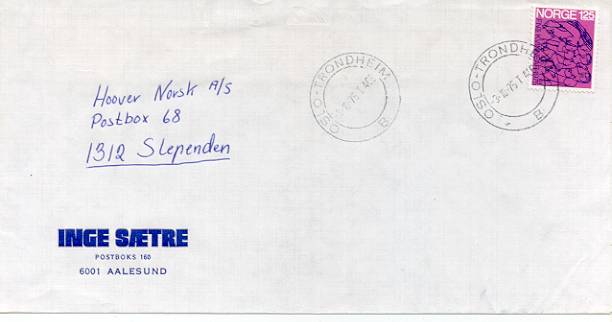 NORGE 125
OSLO-TRONDHEIM
B
OSLO-TRONDHEIM
B
Hoover Norsk A/S
Postbox 68
1312 Slependen
INGE SÆTRE
POSTBOKS 160
6001 AALESUND